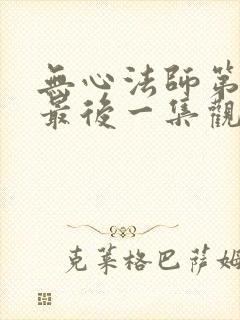 無心法師第
最後一集觀
克莱格巴萨姆